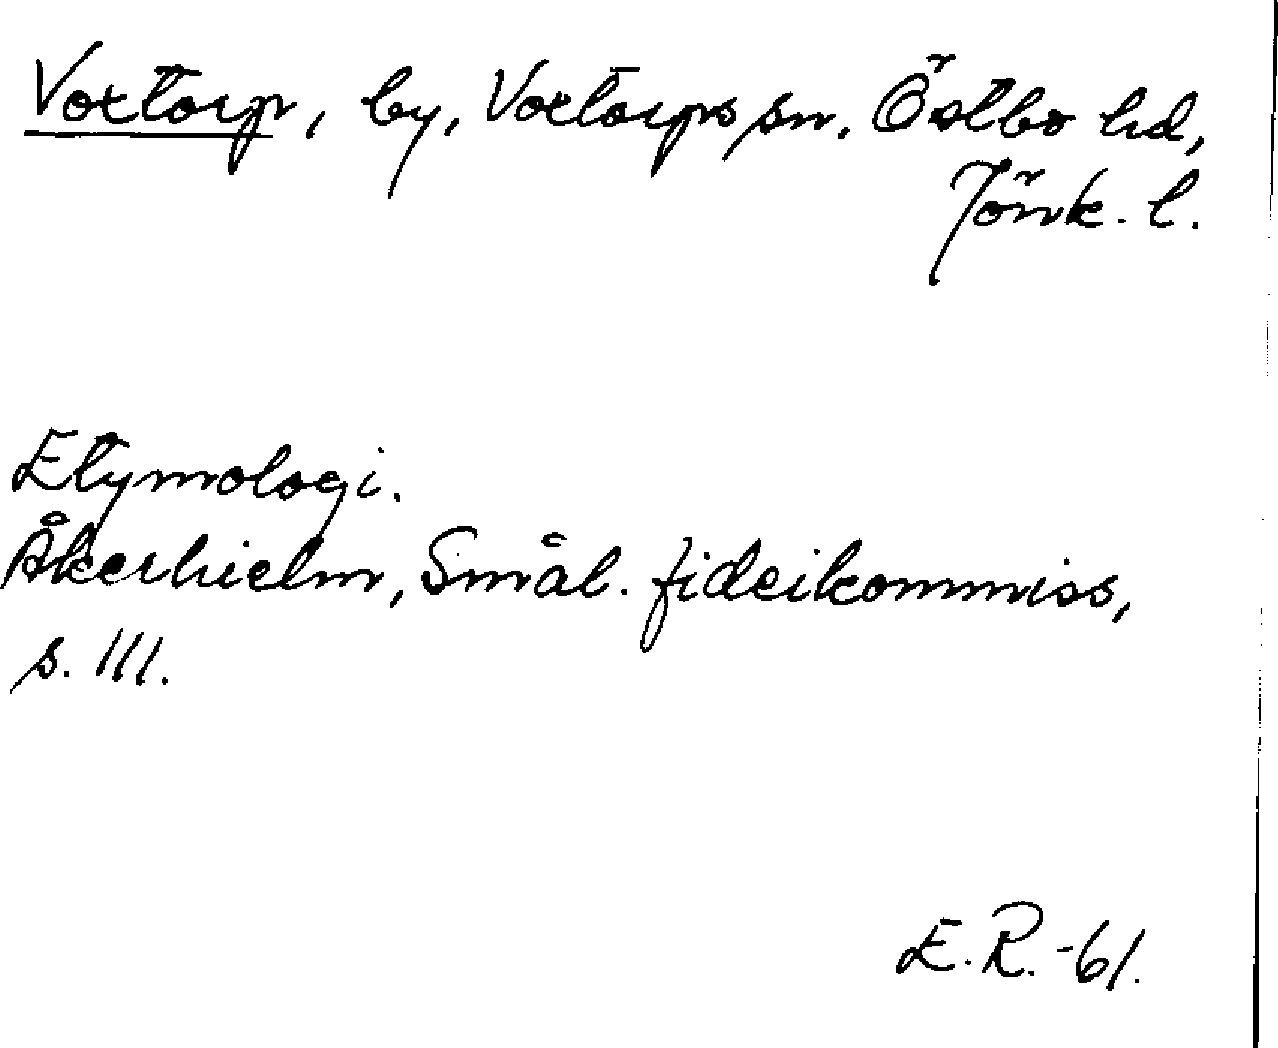 Voxtorp, by, Voxtorps sn. Östbo hd,
Jönk. l.
Etymologi.
Åkerhielm, Smål. fideikommiss,
s. 111.
E.R.-61.